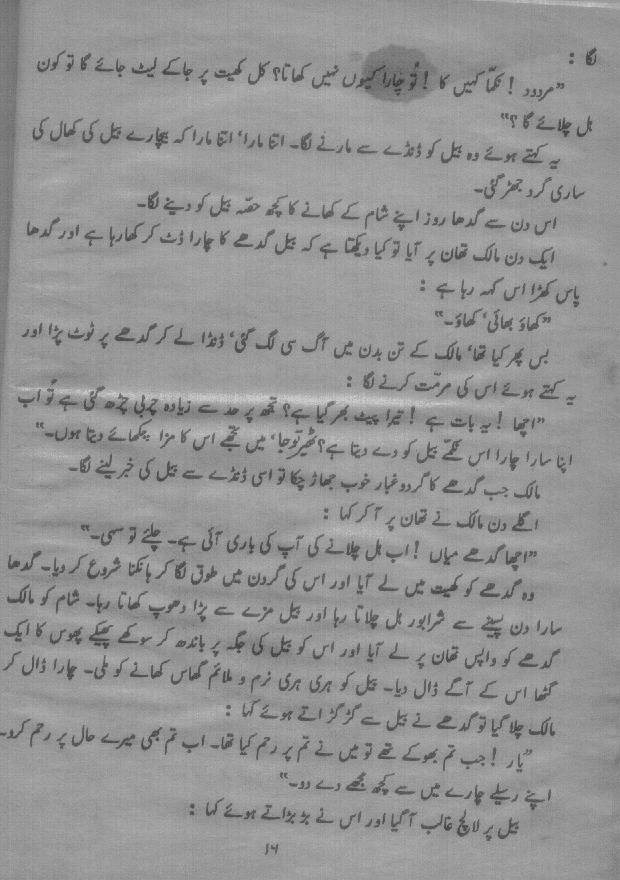 لگا :
"مردود ! نکمّا کہیں کا ! تُو چارا کیوں نہیں کھاتا؟ کل کھیت پر جاکے لیٹ جائے گا تو کون
ہل چلائے گا ؟"
یہ کہتے ہوئے وہ بیل کو ڈنڈے سے مارنے لگا۔ اتنا مارا، اتنا مارا کہ بیچارے بیل کی کھال کی
ساری گرد جھڑ گئی۔
اس دن سے گدھا روز اپنے شام کے کھانے کا کچھ حصّہ بیل کو دینے لگا۔
ایک دن مالک تھان پر آیا تو کیا دیکھتا ہے کہ بیل گدھے کا چارا ڈٹ کر کھا رہا ہے اور گدھا
پاس کھڑا اس کہہ رہا ہے :
"کھاؤ بھائی، کھاؤ۔"
بس پھر کیا تھا، مالک کے تن بدن میں آگ سی لگ گئی، ڈنڈا لے کر گدھے پر ٹوٹ پڑا اور
یہ کہتے ہوئے اس کی مرمّت کرنے لگا :
"اچھا ! یہ بات ہے ! تیرا پیٹ بھر گیا ہے؟ تجھ پر حد سے زیادہ چربی چڑھ گئی ہے تُو اب
اپنا سارا چارا اس نکمّے بیل کو دے دیتا ہے؟ ٹھیر تو جا، میں تجھے اس کا مزا چکھائے دیتا ہوں۔"
مالک جب گدھے کا گرد و غبار خوب جھاڑ چکا تو اسی ڈنڈے سے بیل کی خبر لینے لگا۔
اگلے دن مالک نے تھان پر آکر کہا :
"اچھا گدھے میاں ! اب ہل چلانے کی آپ کی باری آئی ہے۔ چلئے تو سہی۔"
وہ گدھے کو کھیت میں لے آیا اور اس کی گردن میں طوق لگا کر ہانکنا شروع کر دیا۔ گدھا
سارا دن پسینے سے شرابور ہل چلاتا رہا اور بیل مزے سے پڑا دھوپ کھاتا رہا۔ شام کو مالک
گدھے کو واپس تھان پر لے آیا اور اس کو بیل کی جگہ پر باندھ کر سوکھے پھیکے پھوس کا ایک
گٹھا اس کے آگے ڈال دیا۔ بیل کو ہری ہری نرم و ملائم گھاس کھانے کو ملی۔ چارا ڈال کر
مالک چلا گیا تو گدھے نے بیل سے گڑ گڑاتے ہوئے کہا :
"یار ! جب تم بھوکے تھے تو میں نے تم پر رحم کیا تھا۔ اب تم بھی میرے حال پر رحم کرو۔
اپنے رسیلے چارے میں سے کچھ مجھے دے دو۔"
بیل پر لالچ غالب آگیا اور اس نے بڑبڑاتے ہوئے کہا :
۱۶